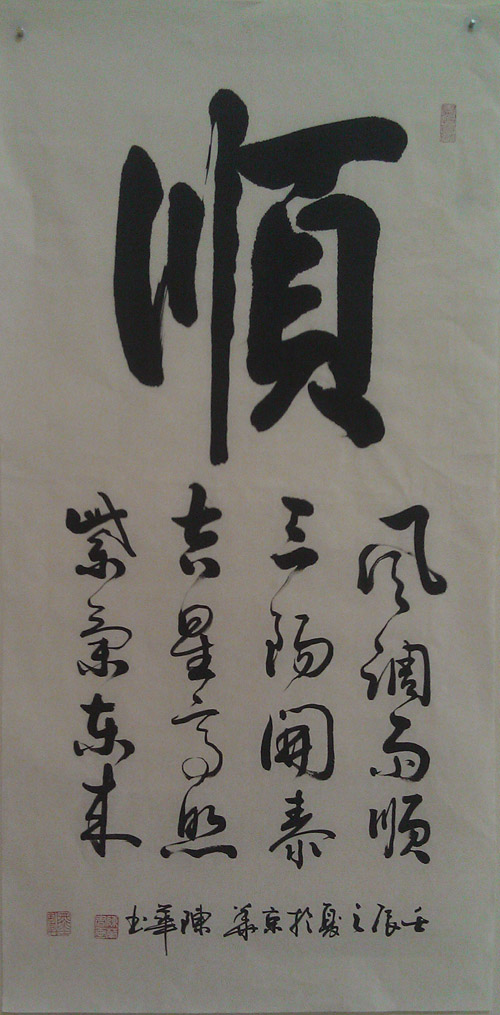 順
風調雨順
三陽開泰
吉星高照
紫氣東来
壬辰之夏於京華陳華书